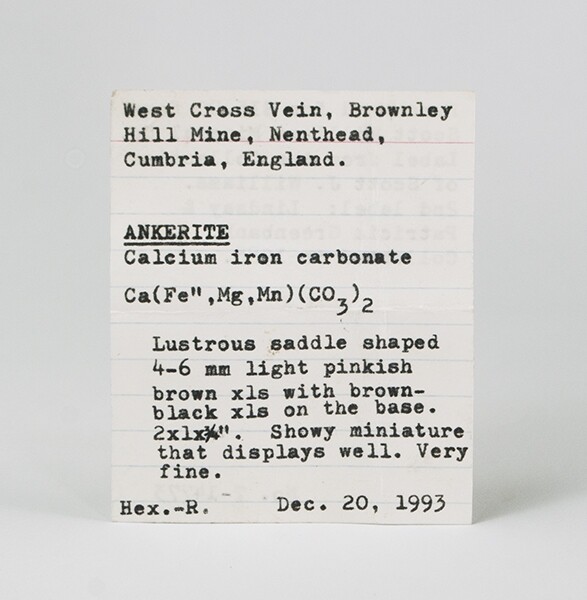 West Cross Vein, Brownley
Hill Mine, Nenthead,
Cumbria, England.
ANKERITE
Calcium iron carbonate
Ca(Fe",Mg,Mn)(CO3)2
Lustrous saddle shaped
4-6 mm light pinkish
brown xls with brown-
black xls on the base.
2x1x¾". Showy miniature
that displays well. Very
fine.
Hex.-R. Dec. 20, 1993